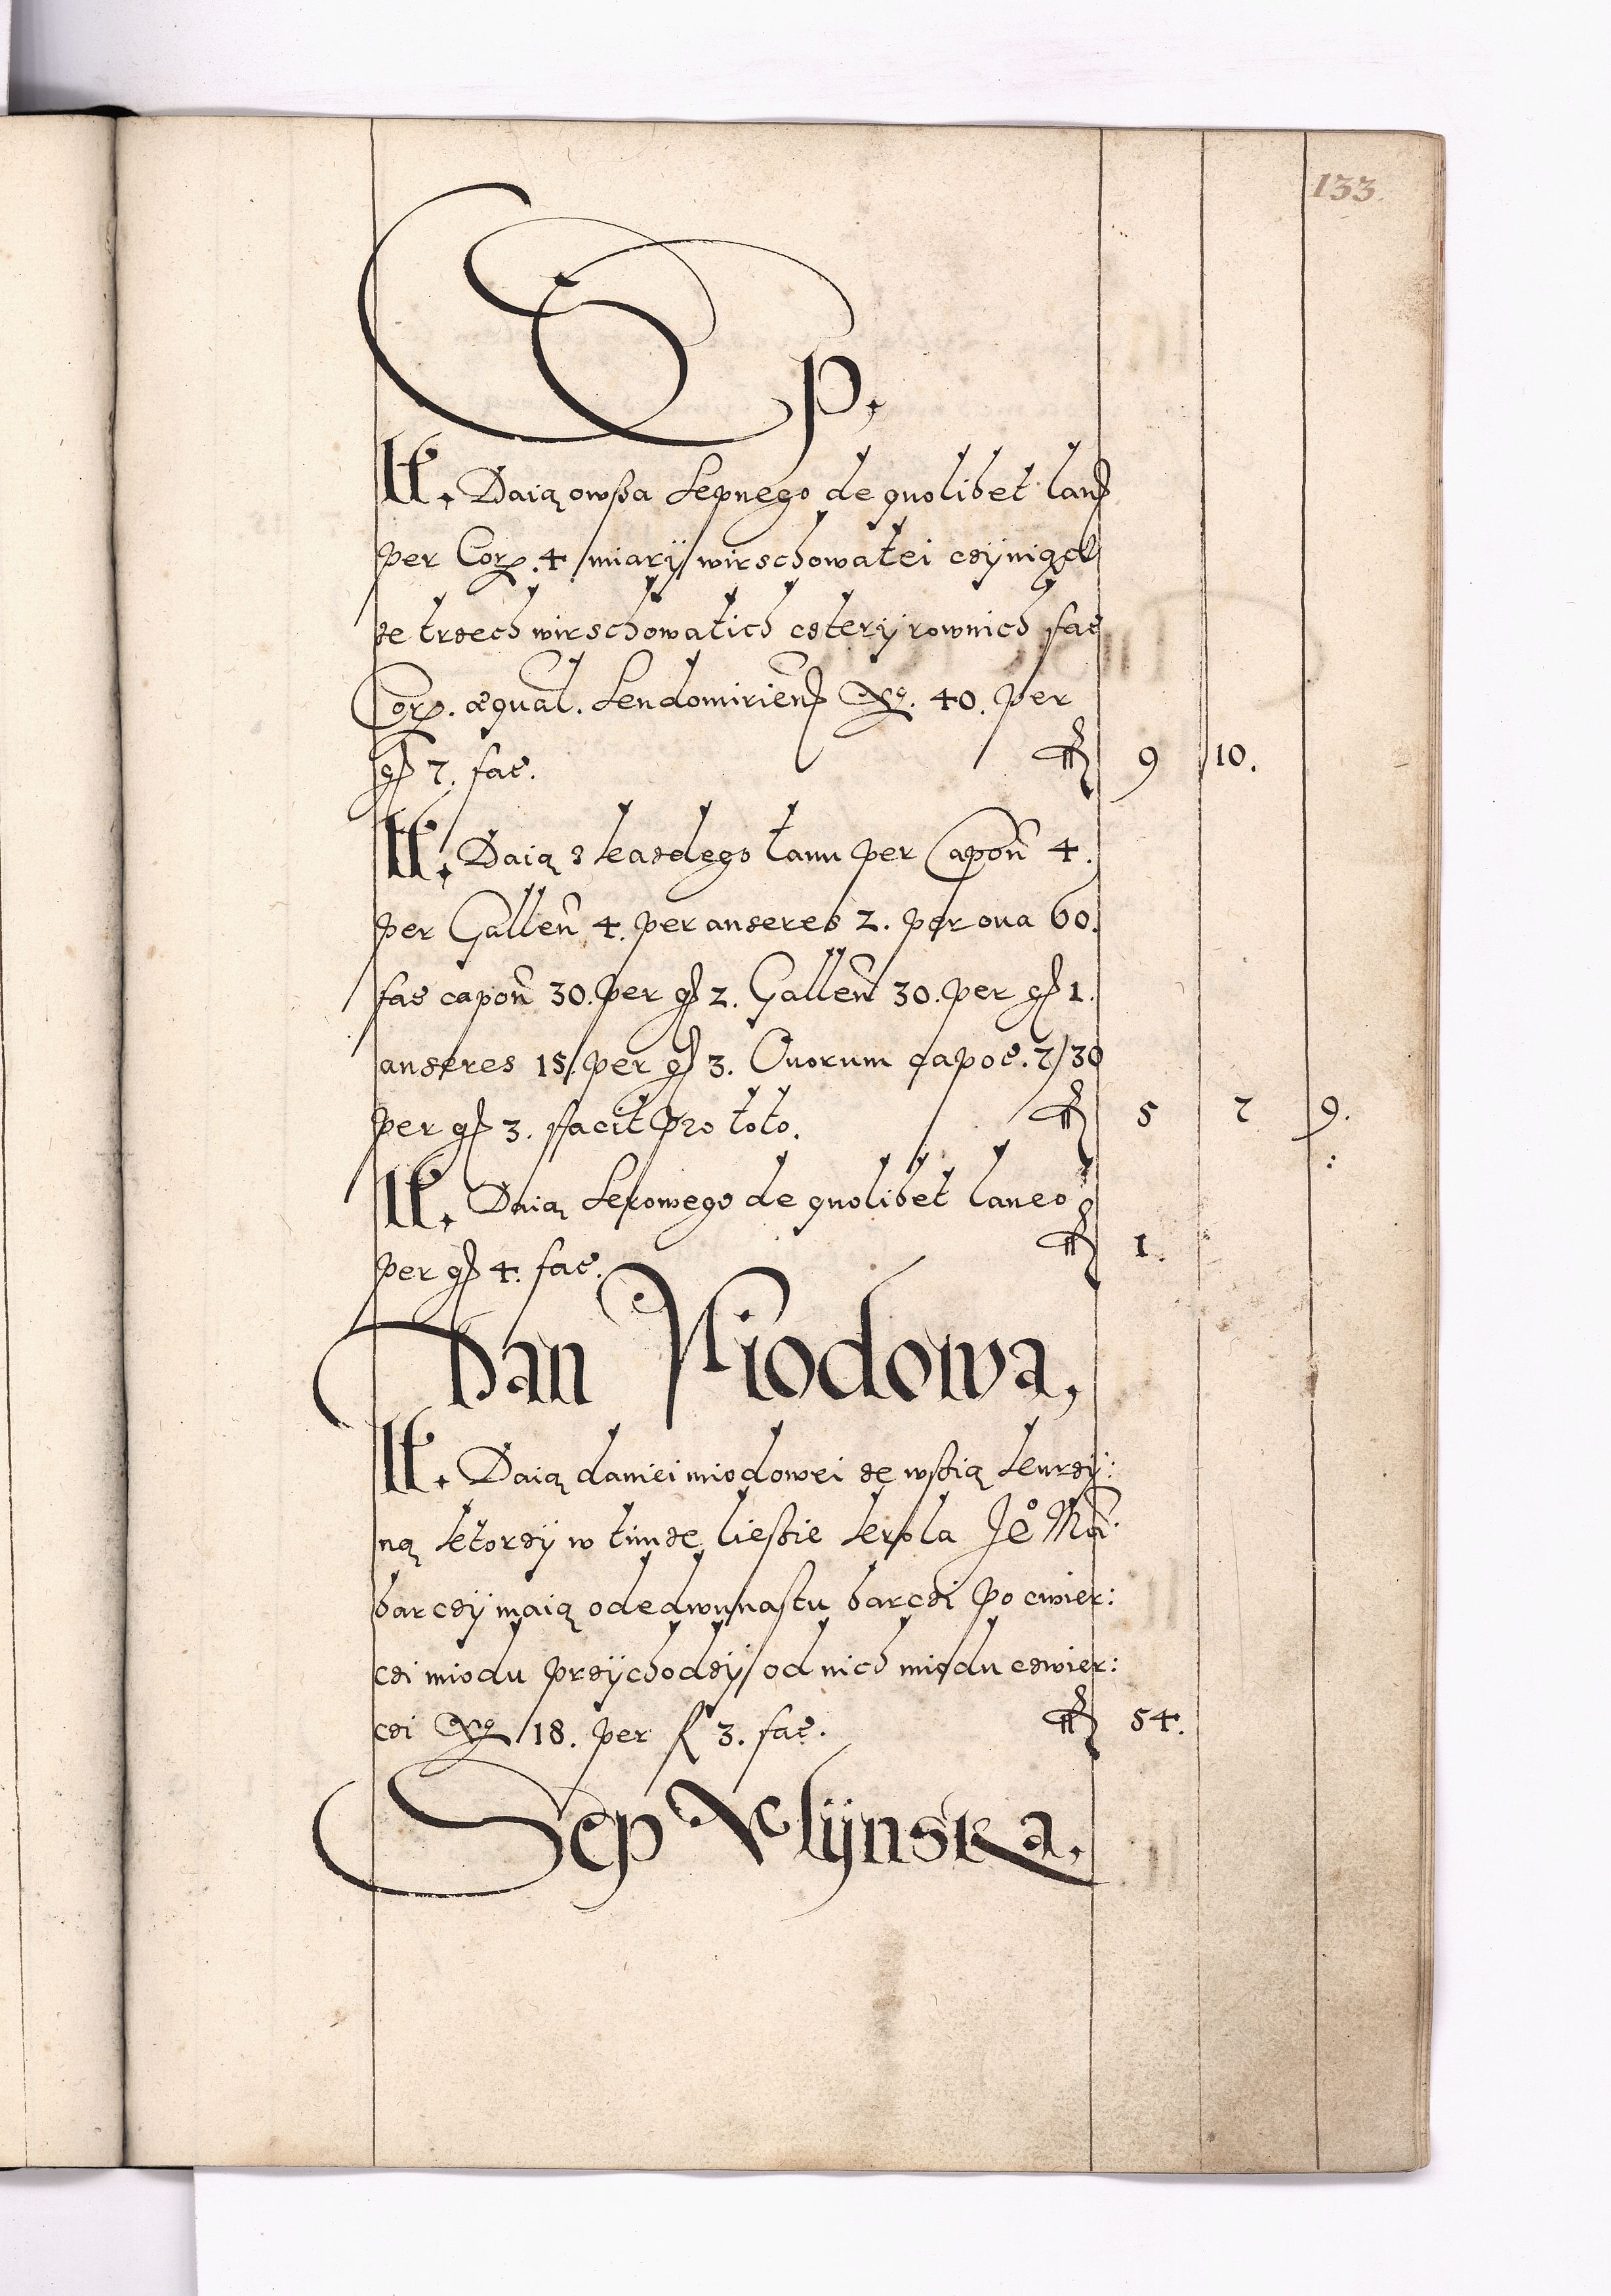 133.
Sep.
It. Daią owßa Sepnego de quolibet lan
per Cor. 4 miary wirschowatei czyniącz
ze trzech wirschowatich cztery rownich fac
Cor. æqual. Sendomirien No. 40. per
g 7. fac. fl 9 10.
It. Daią z kazdego łanu per Capon 4.
per Gallen 4. per anseres 2. per oua 60.
fac capon 30. per g 2. Gallen 30. per g 1.
anseres 15. per g 3. Ouorum capoc. 7/30
per g 3. ffacit pro toto. fl 5 7 9.
It. Daią Serowego de quolibet laneo
per g 4. fac. fl 1.
Dan Miodowa,
It. Daią daniei miodowei ze wssią Kurzy:
ną ktorzy w timze liessie Krola Je Mci
barczy maią ode dwunastu barczi po cwier:
czi miodu przychodzy od nich miodu czwier:
czi No 18. per f 3. fac. fl 54.
Sep Mlynska,